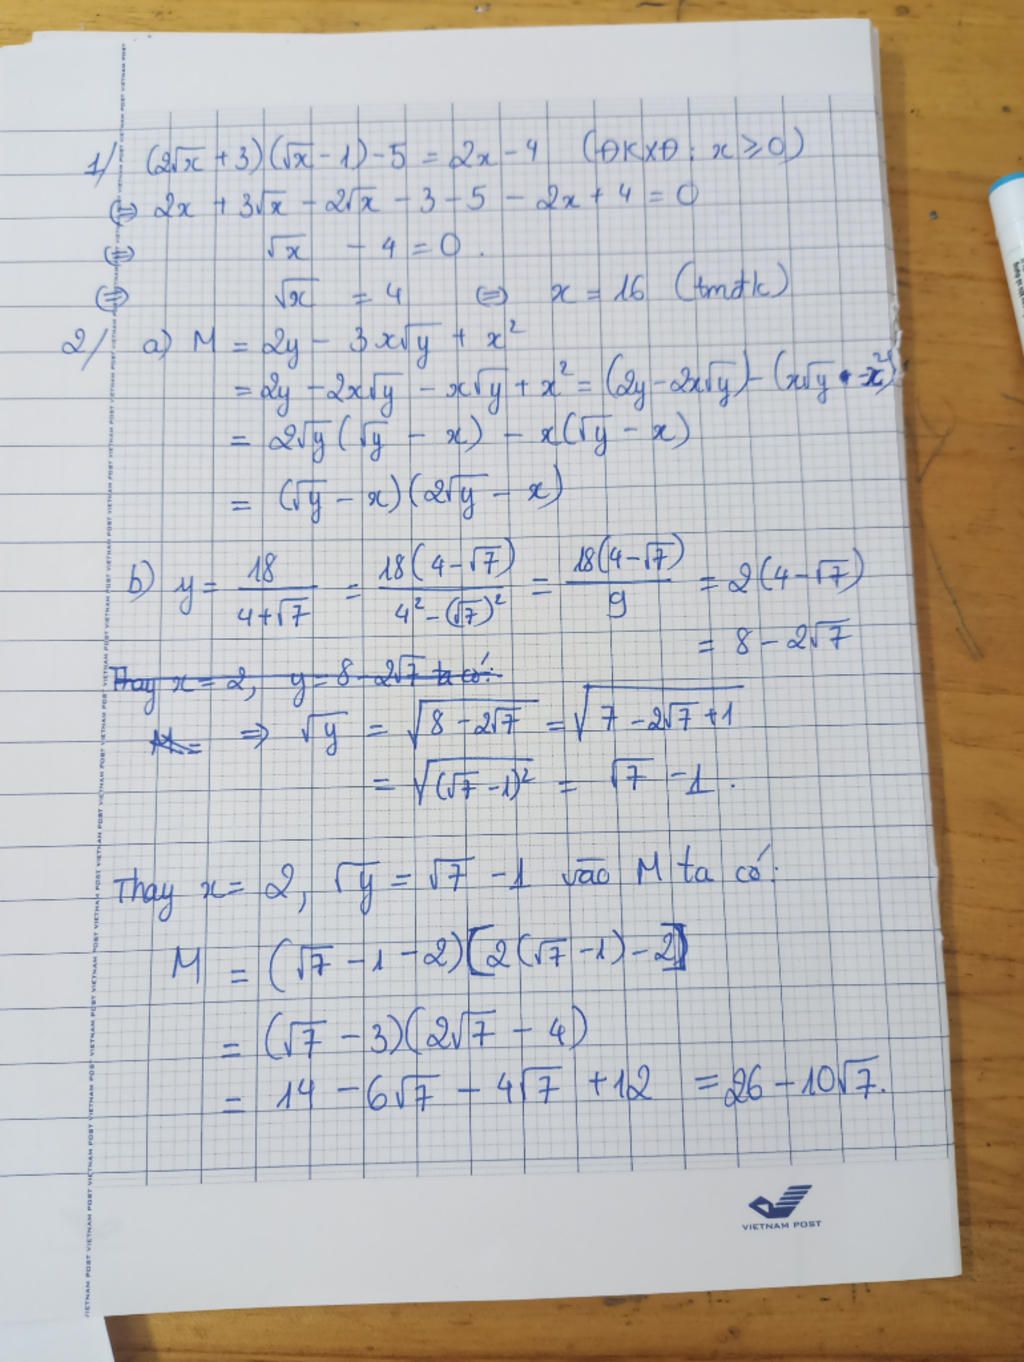 1/ (2√x + 3)(√x - 1) - 5 = 2x - 4 (ĐKXĐ: x ≥ 0)
⇔ 2x + 3√x - 2√x - 3 - 5 - 2x + 4 = 0
⇔ √x - 4 = 0.
⇔ √x = 4 ⇔ x = 16 (tmđk)
2/ a) M = 2y - 3x√y + x²
= 2y - 2x√y - x√y + x² = (2y - 2x√y) - (x√y - x²)
= 2√y(√y - x) - x(√y - x)
= (√y - x)(2√y - x)
b) y = 18/(4+√7) = 18(4-√7)/(4² - (√7)²) = 18(4-√7)/9 = 2(4-√7)
= 8 - 2√7
Thay x = 2, y = 8 - 2√7 ta có:
M = ⇒ √y = √(8 - 2√7) = √(7 - 2√7 + 1)
= √((√7 - 1)²) = √7 - 1.
Thay x = 2, √y = √7 - 1 vào M ta có:
M = (√7 - 1 - 2)[2(√7 - 1) - 2]
= (√7 - 3)(2√7 - 4)
= 14 - 6√7 - 4√7 + 12 = 26 - 10√7.
VIETNAM POST